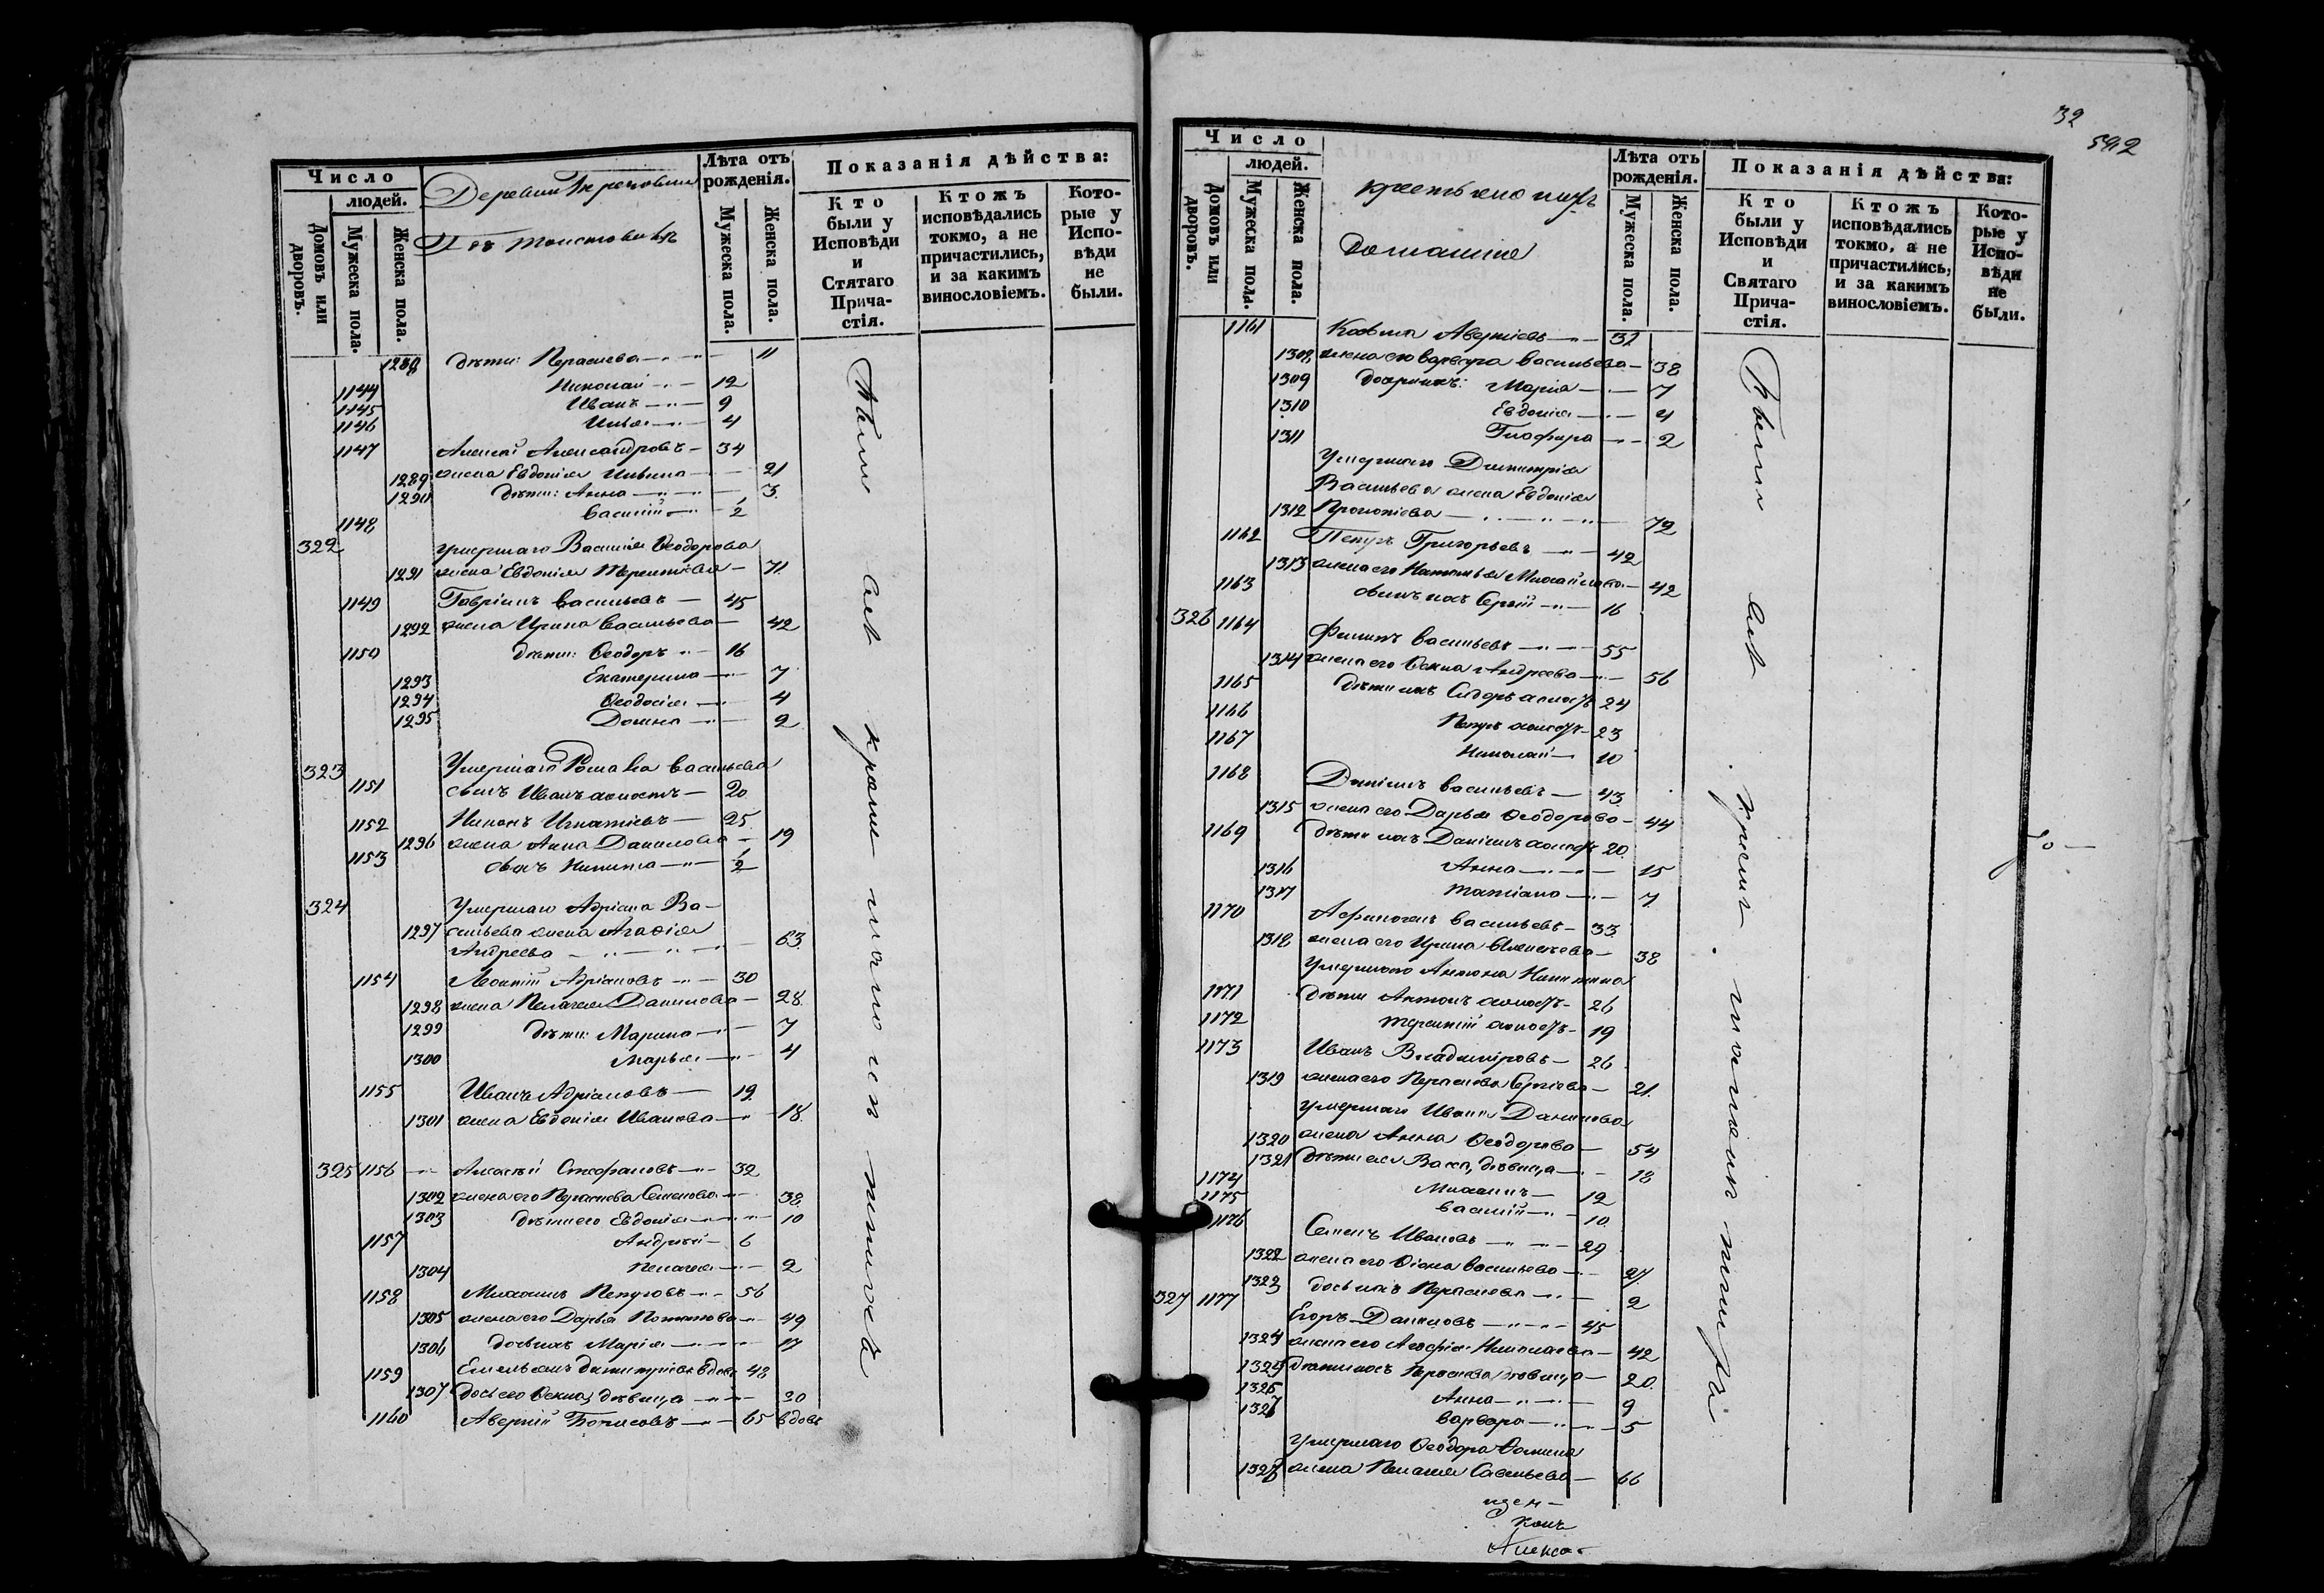 Число
людей.
Домовъ или дворовъ.
Мужеска пола.
Женска пола.
Деревни
Лѣта отъ рожденія.
Мужеска пола.
Женска пола.
Показанія дѣйства:
Кто были у Исповѣди и Стятаго Прича-стія.
Ктожъ исповѣдались токмо, а не причастились, и за какимъ винословіемъ.
Кото-рые у Испо-вѣди не были.
1288 дѣти: Параскева 11
1144 Николай 12
1145 Иванъ 9
1146 Илья 4
1147 Алексѣй Александровъ 34
1289 жена Евдокія Ильина 21
1290 дѣти: Анна 3
1148 Василій ½
322 умершаго Василія Ѳеодорова
1291 жена Евдокія Терентіева 71
1149 Гавріилъ Васильевъ 45
1292 жена Ирина Васильева 42
1150 дѣти: Ѳеодоръ 16
1293 Екатерина 7
1294 Ѳеодосія 4
1295 Домна 2
323 Умершаго Романа Васильева
1151 сынъ Иванъ холостъ 20
1152 Никонъ Игнатіевъ 25
1296 жена Анна Данилова 19
1153 сынъ Никита ½
324 Умершаго Адріана Ва-
1297 сильева жена Агафія
Андреева 63
1154 Леонтій Адріановъ 30
1298 жена Пелагея Данилова 28
1299 дѣти: Марина 7
1300 Марья 4
1155 Иванъ Адріановъ 19
1301 жена Евдокія Иванова 18
325 1156 Алексѣй Стефановъ 32
1302 жена его Параскева Семенова 38
1303 дѣти его Евдокія 10
1157 Андрей 6
1304 Пелагея 2
1158 Михаилъ Петровъ 56
1305 жена его Дарья Потапова 49
1306 дочь ихъ Марія 17
1159 Емельянъ Димитріевъ вдовъ 48
1307 дочь его Ѳекла, дѣвица 20
1160 Аверкій Борисовъ 65 вдовъ
Были всѣ кроме малолѣтнихъ
32
592
Число
людей.
Домовъ или дворовъ.
Мужеска пола.
Женска пола.
крестьяне ихъ
домашніе
Лѣта отъ рожденія.
Мужеска пола.
Женска пола.
Показанія дѣйства:
Кто были у Исповѣди и Святаго Прича-стія.
Ктожъ исповѣдались токмо, а не причастились, и за какимъ винословіемъ.
Кото-рые у Испо-вѣди не были.
1161 Козьма Аверкіевъ 32
1308 жена его Варвара Васильева 38
1309 дочери ихъ: Марія 7
1310 Евдокія 4
1311 Глафира 2
Умершаго Димитрія
Васильева жена Евдокія
1312 Прокопіева 72
1162 Петръ Григорьевъ 42
1313 жена его Наталья Михайлова 42
1163 сынъ ихъ Сергій 16
326 1164 Филипъ Васильевъ 55
1314 жена его Ѳекла Андреева 56
1165 дѣти ихъ Сидоръ холостъ 24
1166 Петръ холостъ 23
1167 Николай 10
1168 Даніилъ Васильевъ 43
1315 жена его Дарья Ѳеодорова 44
1169 дѣти ихъ Даніилъ холостъ 20
1316 Анна 15
1317 Татіана 7
1170 Афиногенъ Васильевъ 33
1318 жена его Ирина Алексѣева 38
Умершаго Антона Никитина
1171 дѣти Антонъ холостъ 26
1172 Терентій холостъ 19
1173 Иванъ Владиміровъ 26
1319 жена его Параскева Сергіева 21
умершаго Ивана Данилова
1320 жена Анна Ѳеодорова 54
1321 дѣти ея Васса, дѣвица 18
1174 Михаилъ 12
1175 Василій 10
1176 Семенъ Ивановъ 29
1322 жена его Васильева 27
1323 дочь ихъ Параскева 2
327 1177 Егоръ Даниловъ 45
1324 жена его Агафія Николаева 42
1325 дѣти ихъ Параскева дѣвица 20
1326 Анна 9
1327 Варвара 5
умершаго Ѳеодора Ѳомина
1328 жена Пелагея Савельева 66
Были всѣ кроме малолѣтнихъ